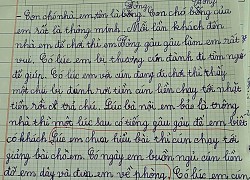 Bống.
- Con chó nhà em, tên là bống. Con chó bống của
em rất là thông minh. Mỗi lần khách đến
nhà em để chơi thì em bống gâu gâu làm em rất
vui. Có lúc em bị thương còn đánh đi tìm người
để giúp. Có lúc em và cún đang đi chơi thì thấy
một chú bị đánh rơi tiền cún liền chạy tới nhặt
tiền rồi đi trả chú. Lúc bà nội em bảo là trông
nhà thì một lúc sau có tiếng gâu gâu để em biết
có khách. Lúc em chưa hiểu bài thì cún chạy tới
giảng bài cho em. Có ngày em buồn ngủ cún liền
đỡ em dậy và đưa em về phòng. Có lúc em cún